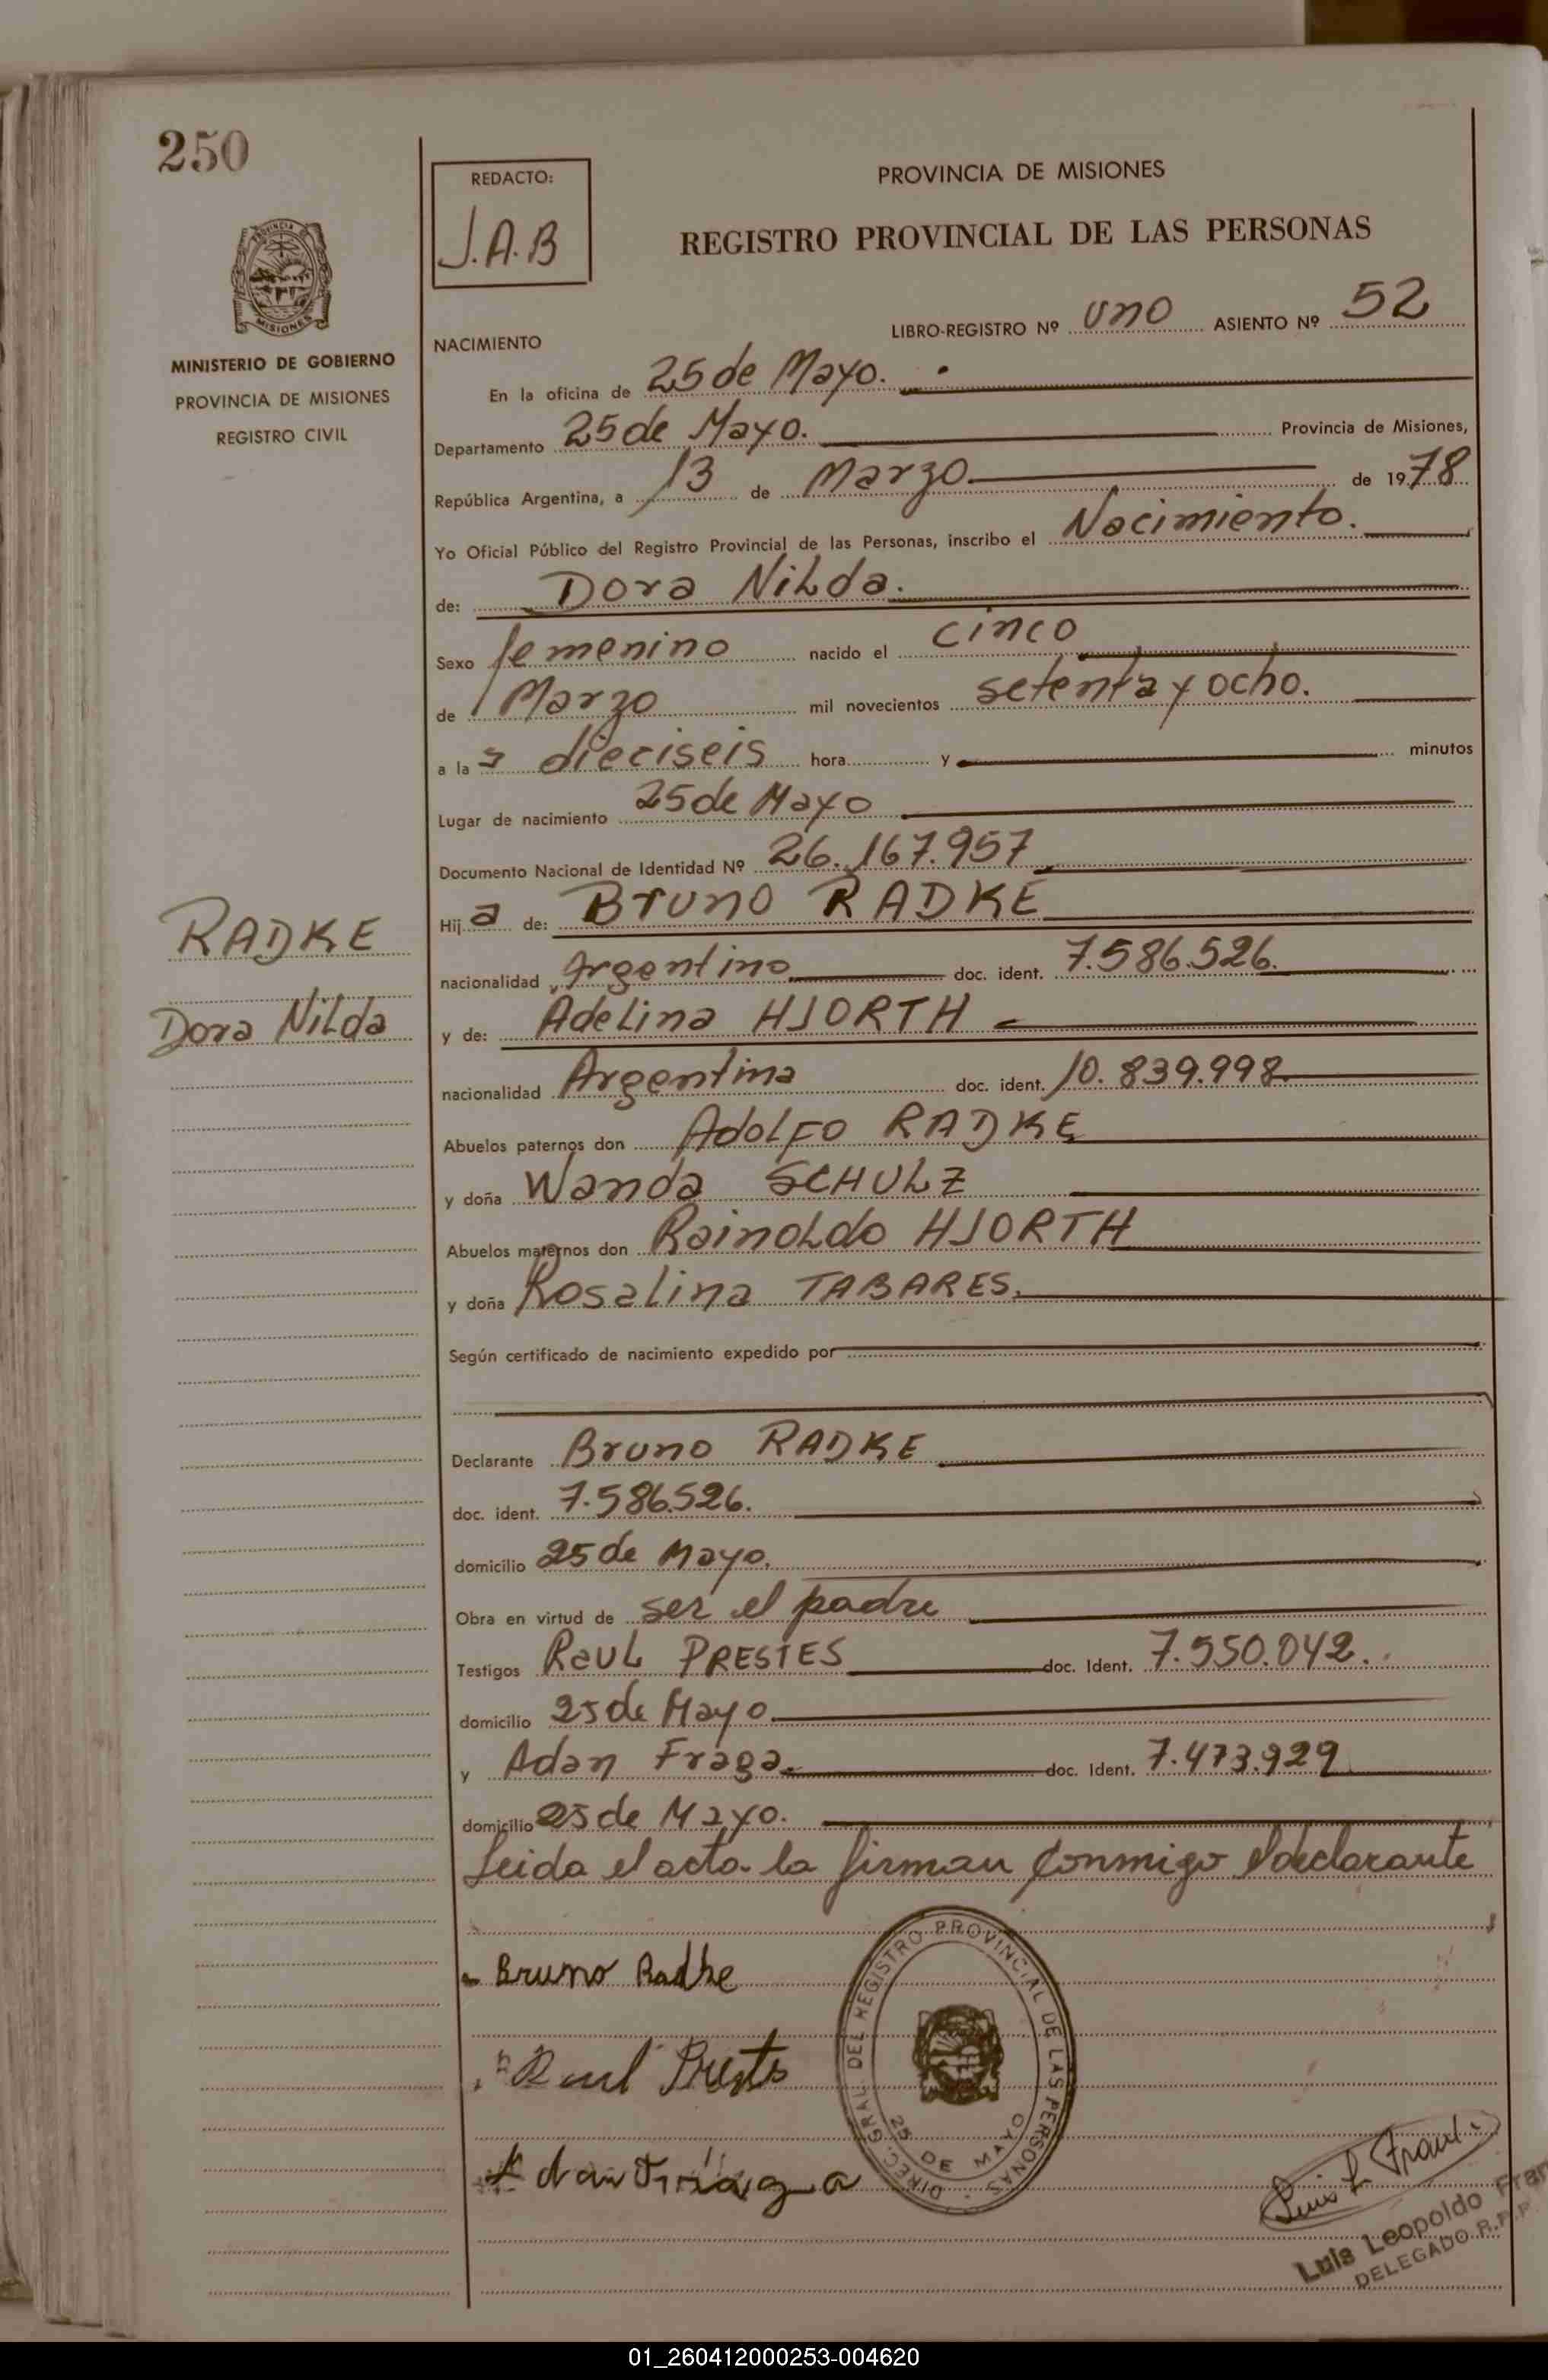 250
REDACTO:
J.A.B
PROVINCIA DE MISIONES
REGISTRO PROVINCIAL DE LAS PERSONAS
PROVINCIA DE
MISIONES
MINISTERIO DE GOBIERNO
PROVINCIA DE MISIONES
REGISTRO CIVIL
LIBRO-REGISTRO Nº uno ASIENTO Nº 52
NACIMIENTO
En la oficina de 25 de Mayo.
Departamento 25 de Mayo. Provincia de Misiones,
República Argentina, a 13 de Marzo de 1978
Yo Oficial Público del Registro Provincial de las Personas, inscribo el Nacimiento.
de: Dora Nilda.
Sexo femenino nacido el cinco
de Marzo mil novecientos setenta y ocho.
a la s dieciseis hora y minutos
Lugar de nacimiento 25 de Mayo
Documento Nacional de Identidad Nº 26.167.957
Hij a de: Bruno RADKE
RADKE
nacionalidad Argentino doc. ident. 7.586.526.
Dora Nilda
y de: Adelina HJORTH
nacionalidad Argentina doc. ident. 10.839.998
Abuelos paternos don Adolfo RADKE
y doña Wanda SCHULZ
Abuelos maternos don Rainoldo HJORTH
y doña Rosalina TABARES.
Según certificado de nacimiento expedido por
Declarante Bruno RADKE
doc. ident. 7.586.526.
domicilio 25 de Mayo.
Obra en virtud de ser el padre
Testigos Raul PRESTES doc. Ident. 7.550.042.
domicilio 25 de Mayo.
y Adan Fraga. doc. Ident. 7.473.929
domicilio 25 de Mayo.
Leida el acta la firman conmigo el declarante
Bruno Radke
Raul Prestes
Adan Fraga
DIREC. GRAL. DEL REGISTRO PROVINCIAL DE LAS PERSONAS
25 DE MAYO
Luis L. Frank
Luis Leopoldo Fran
DELEGADO R.P.P.
01_260412000253-004620